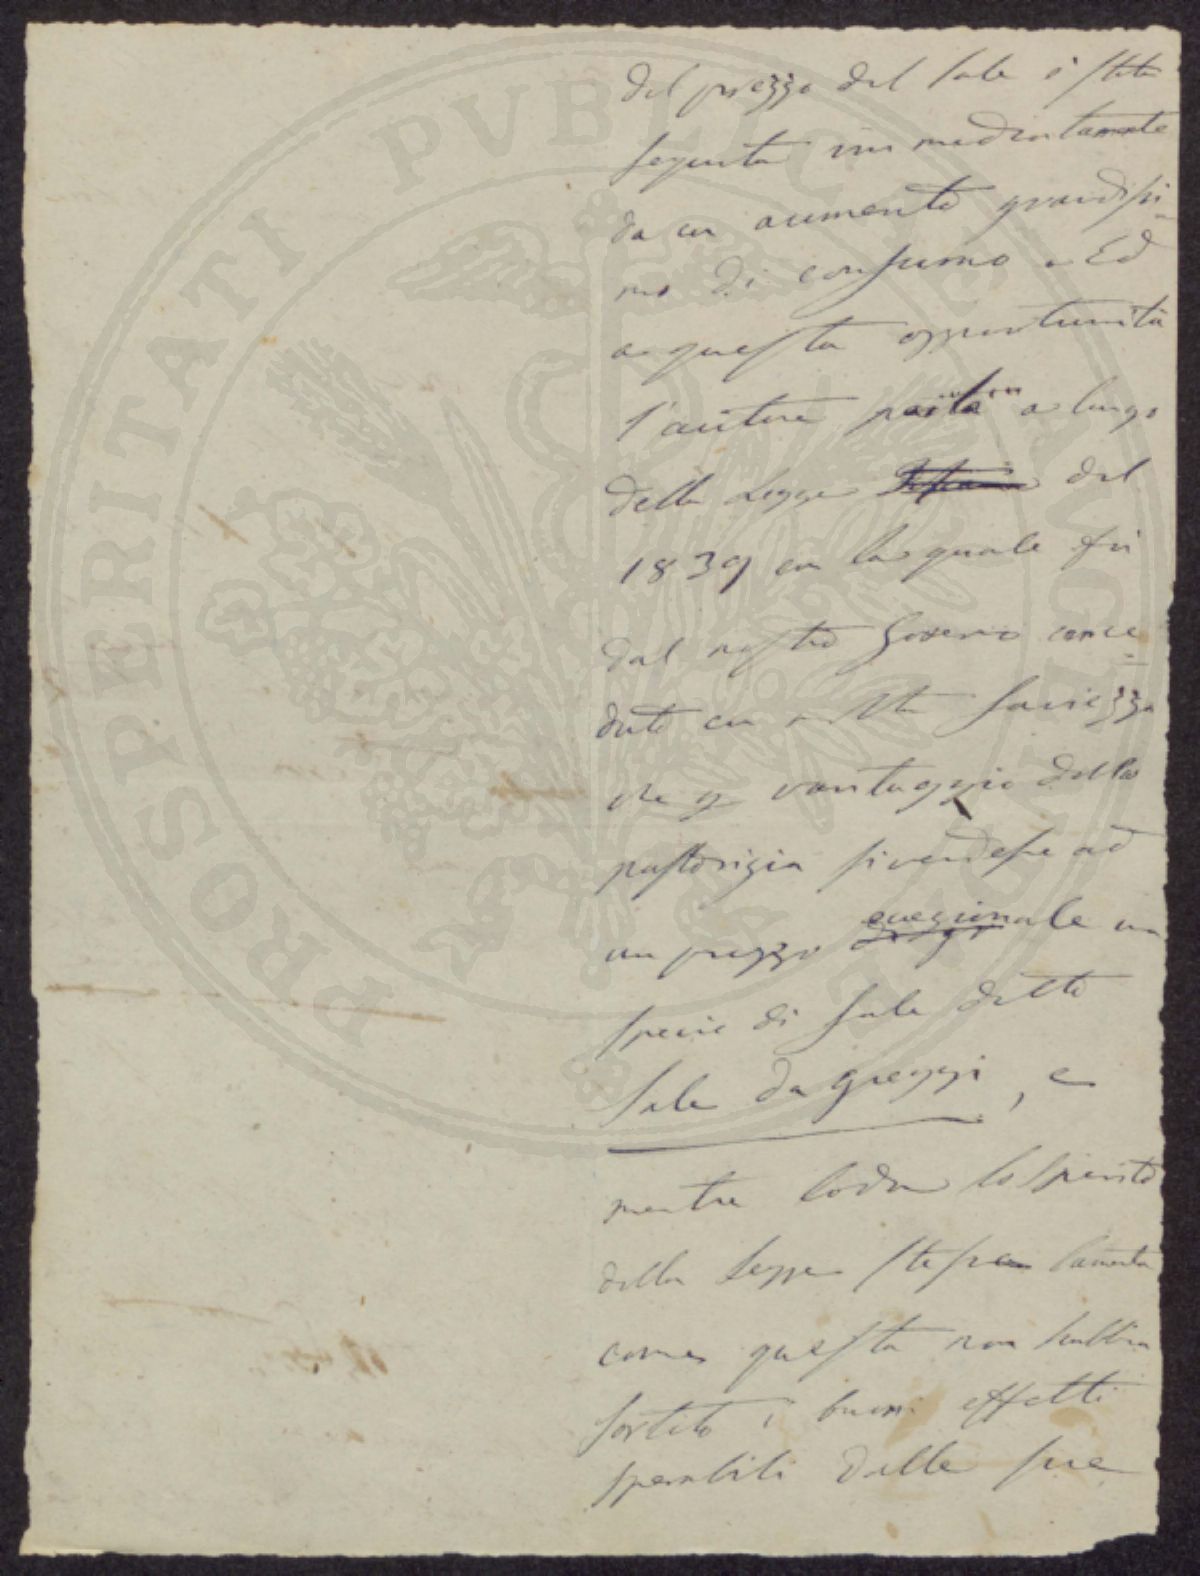 PROSPERITATI PVBLICAE AVGENDAE
del prezzo del sale è stata
seguita immediatamente
da un aumento grandissi-
mo di consumo. Ed
a questa opportunità
l'autore parla a lungo
della Legge del
1839 con la quale fu
dal nostro Governo conce-
duto con molta saviezza
che p vantaggio della
pastorizia si vendesse ad
un prezzo eccezionale una
specie di sale detto
sale da greggi, e
mentre loda lo spirito
della Legge stessa lamenta
come questa non habbia
sortito i buoni effetti
sperabili dalle sue